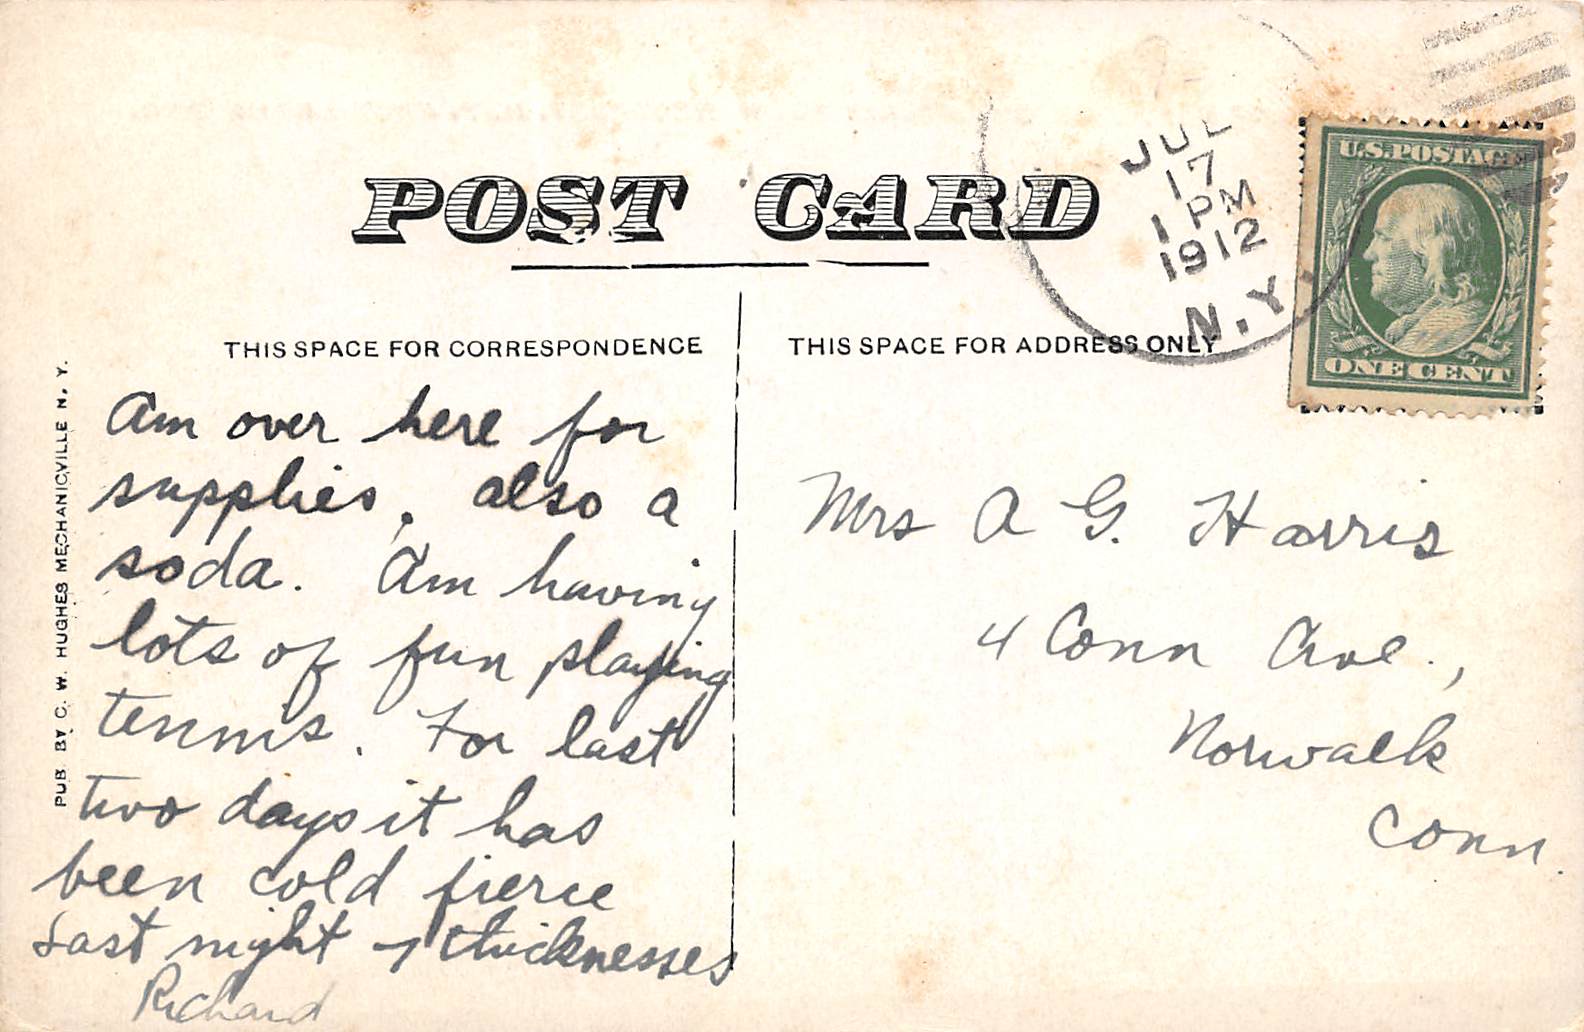 POST CARD
JUL
17
1 PM
1912
N.Y.
U.S. POSTAGE
ONE CENT
THIS SPACE FOR CORRESPONDENCE
THIS SPACE FOR ADDRESS ONLY
PUB. BY C. W. HUGHES MECHANICVILLE N. Y.
Am over here for
supplies, also a
soda. Am having
lots of fun playing
tennis. For last
two days it has
been cold fierce
Last night 7 thicknesses
Richard
Mrs A G. Harris
4 Conn Ave.,
Norwalk
Conn